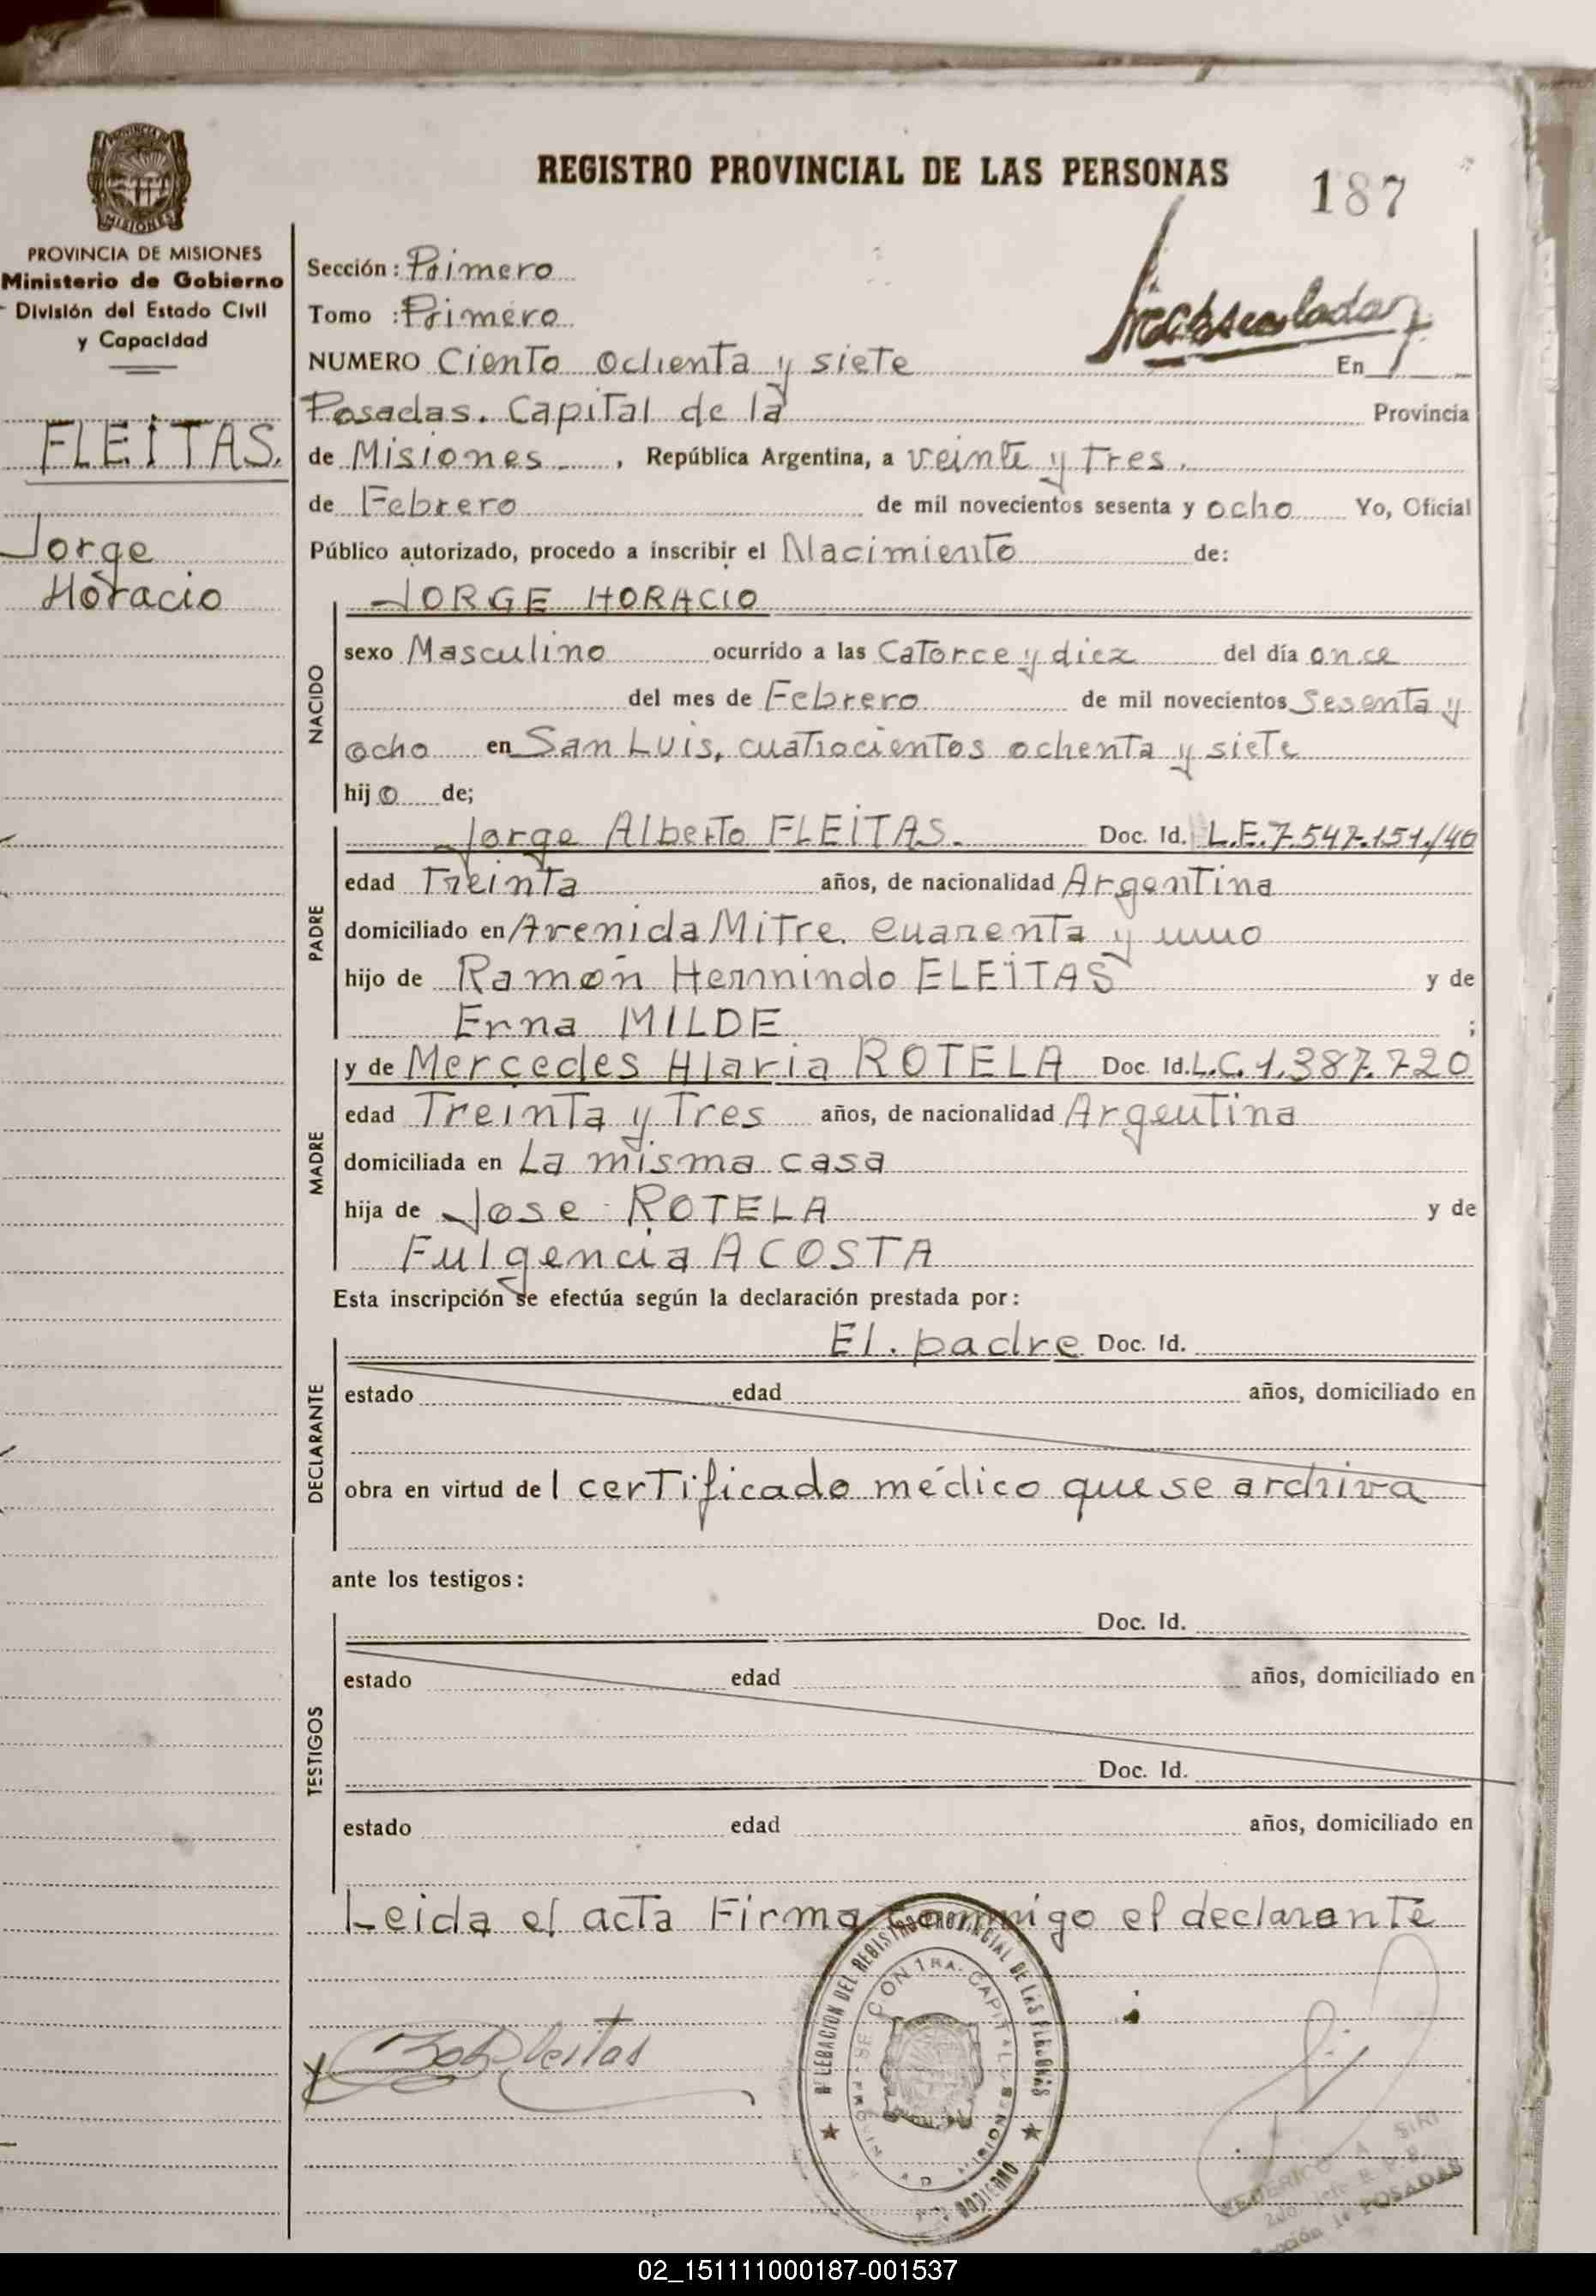 REGISTRO PROVINCIAL DE LAS PERSONAS
187
PROVINCIA DE MISIONES
MISIONES
PROVINCIA DE MISIONES
Ministerio de Gobierno
División del Estado Civil
y Capacidad
FLEITAS.
Jorge
Horacio
Sección: Primero
Tomo : Primero
NUMERO Ciento ochenta y siete En
Posadas. Capital de la Provincia
de Misiones , República Argentina, a veinte y Tres.
de Febrero de mil novecientos sesenta y ocho Yo, Oficial
Público autorizado, procedo a inscribir el Nacimiento de:
NACIDO
JORGE HORACIO
sexo Masculino ocurrido a las Catorce y diez del día once
del mes de Febrero de mil novecientos Sesenta y
ocho en San Luis, cuatrocientos ochenta y siete
hijo de;
PADRE
Jorge Alberto FLEITAS. Doc. Id. L.E.7.547.151/40
edad Treinta años, de nacionalidad Argentina
domiciliado en Avenida Mitre. Cuarenta y uno
hijo de Ramón FLEITAS y de
Erna MILDE ;
MADRE
y de Mercedes Maria ROTELA Doc. Id. L.C. 1.387.720
edad Treinta y Tres años, de nacionalidad Argentina
domiciliada en La misma casa
hija de Jose ROTELA y de
Fulgencia ACOSTA
Esta inscripción se efectúa según la declaración prestada por:
DECLARANTE
El. padre Doc. Id.
estado edad años, domiciliado en
obra en virtud del certificado médico que se archiva
ante los testigos:
TESTIGOS
Doc. Id.
estado edad años, domiciliado en
Doc. Id.
estado edad años, domiciliado en
Leida el acta Firma conmigo el declarante
DELEGACION DEL REGISTRO PROVINCIAL DE LAS PERSONAS
SECCION 1RA. CAPITAL
GOBIERNO
Fleitas
FEDERICO A. SIRI
2do. Jefe R. P. P.
Sección 1ª POSADAS
02_151111000187-001537